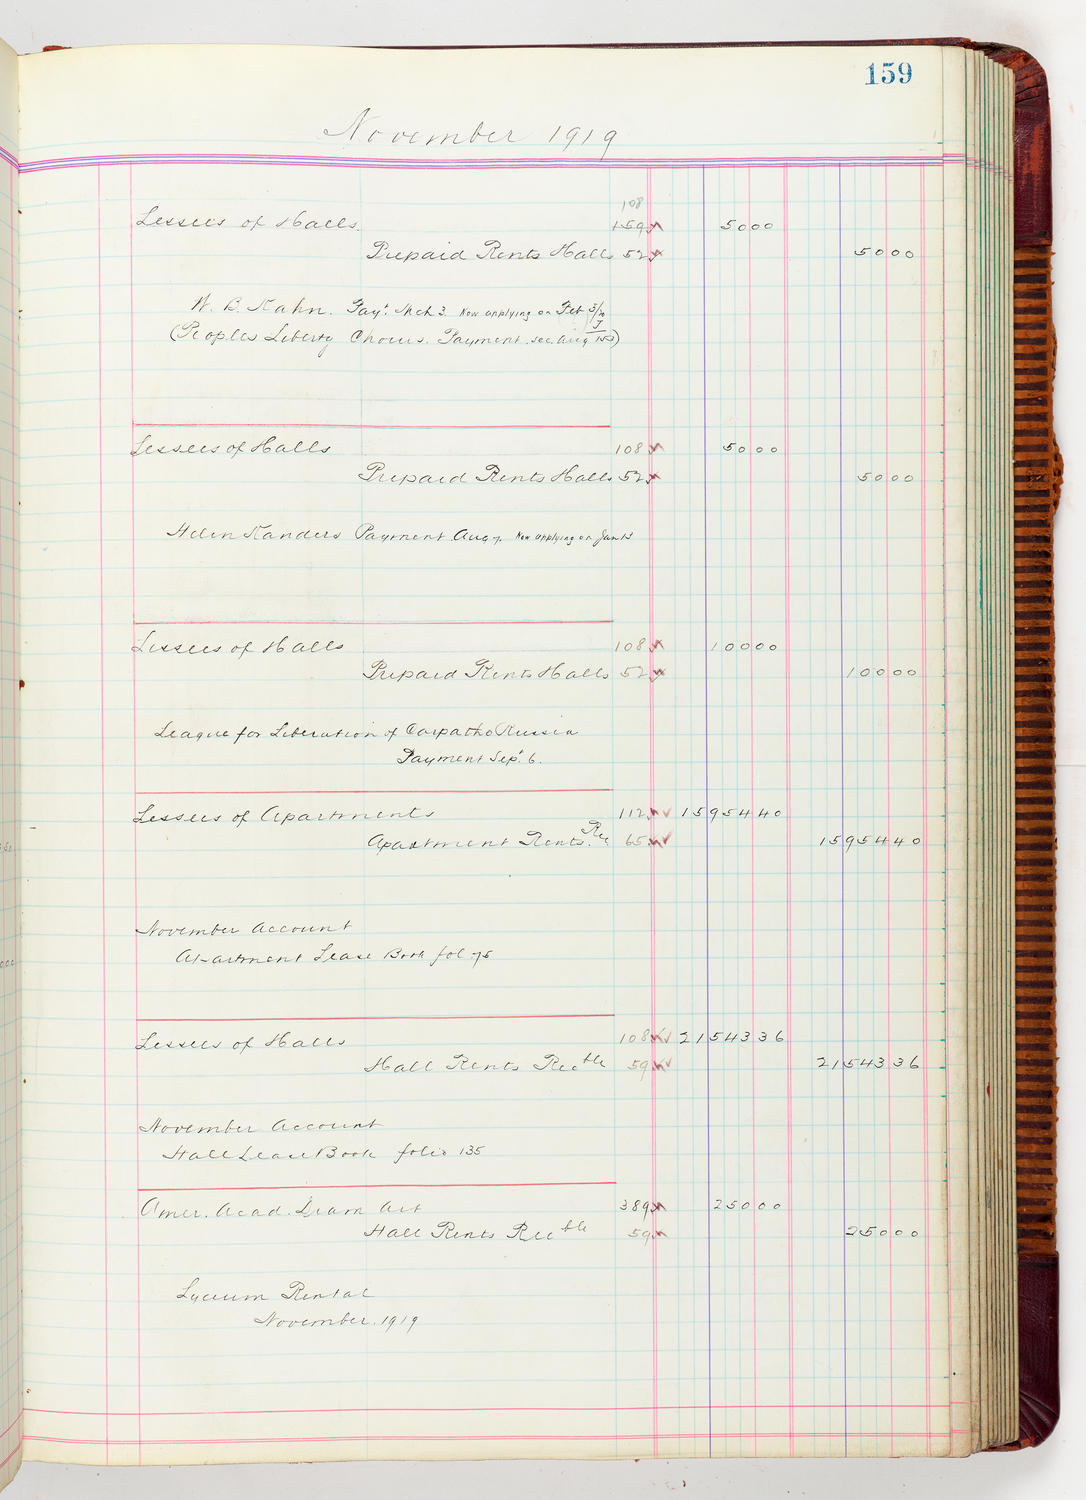 159
November 1919
108
Lessees of Halls 159 5000
Prepaid Rents Halls 52 5000
W. B. Kahn. Payt. Mch 3. Now applying on Feb 3/20
(Peoples Liberty Chorus. Payment. see Aug J/153)
Lessees of Halls 108 5000
Prepaid Rents Halls 52 5000
Helen Kanders Payment Aug 7. Now applying on Jan 13
Lessees of Halls 108 10000
Prepaid Rents Halls 52 10000
League for Liberation of Carpatho Russia
Payment Sept. 6.
Lessees of Apartments 112 1595440
Apartment Rents. Rec 65 1595440
November Account
Apartment Lease Book fol 75
Lessees of Halls 108 2154336
Hall Rents Recble 59 2154336
November Account
Hall Lease Book folio 135
Amer. Acad. Dram Art 389 25000
Hall Rents Recble 59 25000
Lyceum Rental
November. 1919